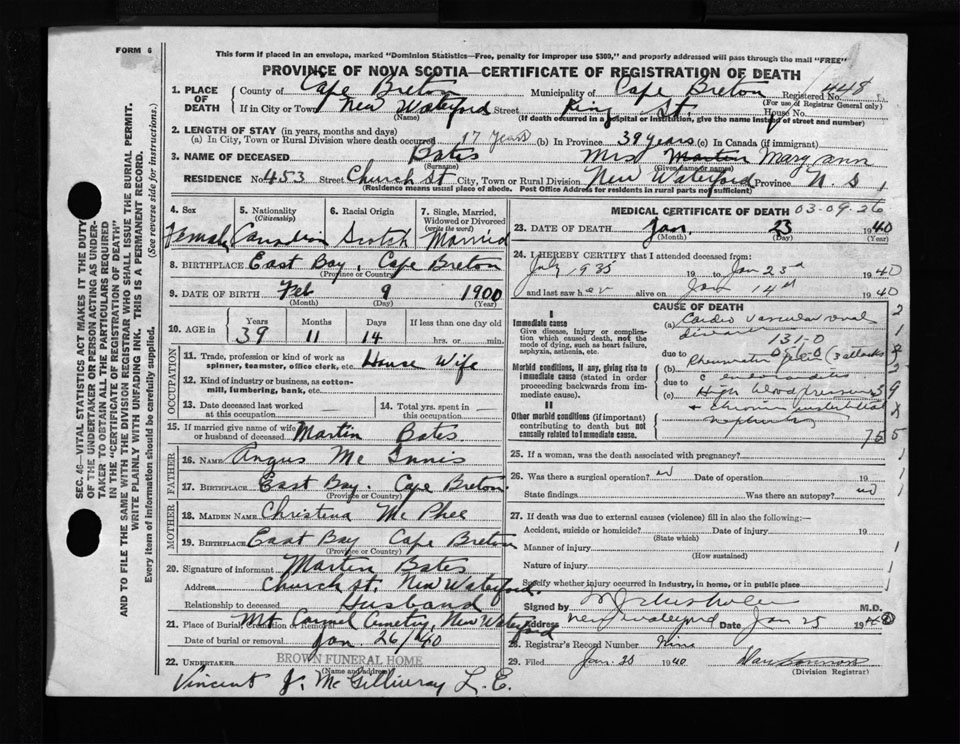 FORM 6
This form if placed in an envelope, marked "Dominion Statistics—Free, penalty for improper use $300," and properly addressed will pass through the mail "FREE"
PROVINCE OF NOVA SCOTIA—CERTIFICATE OF REGISTRATION OF DEATH
SEC. 46—VITAL STATISTICS ACT MAKES IT THE DUTY
OF THE UNDERTAKER OR PERSON ACTING AS UNDER-
TAKER TO OBTAIN ALL THE PARTICULARS REQUIRED
IN THE "CERTIFICATE OF REGISTRATION OF DEATH"
AND TO FILE THE SAME WITH THE DIVISION REGISTRAR WHO SHALL ISSUE THE BURIAL PERMIT.
WRITE PLAINLY WITH UNFADING INK. THIS IS A PERMANENT RECORD.
Every item of information should be carefully supplied. (See reverse side for instructions.)
1. PLACE OF DEATH County of Cape Breton Municipality of Cape Breton Registered No. 448
(For use of Registrar General only)
If in City or Town New Waterford Street King St. House No.
(Name) (If death occurred in a hospital or institution, give the name instead of street and number)
2. LENGTH OF STAY (in years, months and days)
(a) In City, Town or Rural Division where death occurred 17 Years (b) In Province 39 years (c) In Canada (if immigrant)
3. NAME OF DECEASED Bates Mrs Martin Mary Ann
(Surname) (Given name or names)
RESIDENCE No. 453 Street Church St City, Town or Rural Division New Waterford Province N. S.
(Residence means usual place of abode. Post Office Address for residents in rural parts not sufficient)
4. Sex Female
5. Nationality (Citizenship) Canadian
6. Racial Origin Scotch
7. Single, Married, Widowed or Divorced (write the word) Married
8. BIRTHPLACE East Bay, Cape Breton
(Province or Country)
9. DATE OF BIRTH Feb 9 1900
(Month) (Day) (Year)
10. AGE in Years 39 Months 11 Days 14 If less than one day old
hrs. or min.
OCCUPATION
11. Trade, profession or kind of work as spinner, teamster, office clerk, etc. House Wife
12. Kind of industry or business, as cotton-mill, lumbering, bank, etc.
13. Date deceased last worked at this occupation —
14. Total yrs. spent in this occupation —
15. If married give name of wife or husband of deceased Martin Bates
FATHER
16. NAME Angus Mc Innis
17. BIRTHPLACE East Bay. Cape Breton
(Province or Country)
MOTHER
18. MAIDEN NAME Christina McPhee
19. BIRTHPLACE East Bay Cape Breton
(Province or Country)
20. Signature of informant Martin Bates
Address Church St. New Waterford
Relationship to deceased Husband
21. Place of Burial, Cremation or Removal Mt Carmel Cemetry, New Waterford
Date of burial or removal Jan. 26/ 1940
22. UNDERTAKER BROWN FUNERAL HOME
(Name and address)
Vincent J. McGillivray L. E.
MEDICAL CERTIFICATE OF DEATH 03-09-26
23. DATE OF DEATH Jan. 23 1940
(Month) (Day) (Year)
24. I HEREBY CERTIFY that I attended deceased from:
July 1935 19 to Jan 23rd 1940
and last saw her alive on Jan 14th 1940
CAUSE OF DEATH
I
Immediate cause
Give disease, injury or complication which caused death, not the mode of dying, such as heart failure, asphyxia, asthenia, etc.
(a) Cardio vascular renal disease
131-0
Morbid conditions, if any, giving rise to immediate cause (stated in order proceeding backwards from immediate cause)
due to
(b) Rheumatic (3 attacks
c endocarditis
due to
(c) High blood pressure
II
Other morbid conditions (important) contributing to death but not causally related to immediate cause.
+ Chronic interstitial nephritis
25. If a woman, was the death associated with pregnancy?
26. Was there a surgical operation? no Date of operation 19
State findings Was there an autopsy? no
27. If death was due to external causes (violence) fill in also the following:—
Accident, suicide or homicide? Date of injury 19
(State which)
Manner of injury
(How sustained)
Nature of injury
Specify whether injury occurred in industry, in home, or in public place
Signed by M.D.
Address New Waterford Date Jan 25 1940
28. Registrar's Record Number Nine
29. Filed Jan. 25 1940
(Division Registrar)